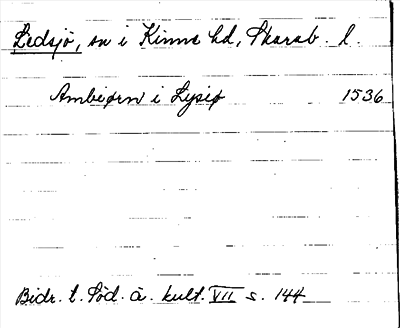 Ledsjö, sn i Kinne hd, Skarab. l.
Ambiørn i Lysiø 1536
Bidr. t. Söd. å. kult. VII s. 144